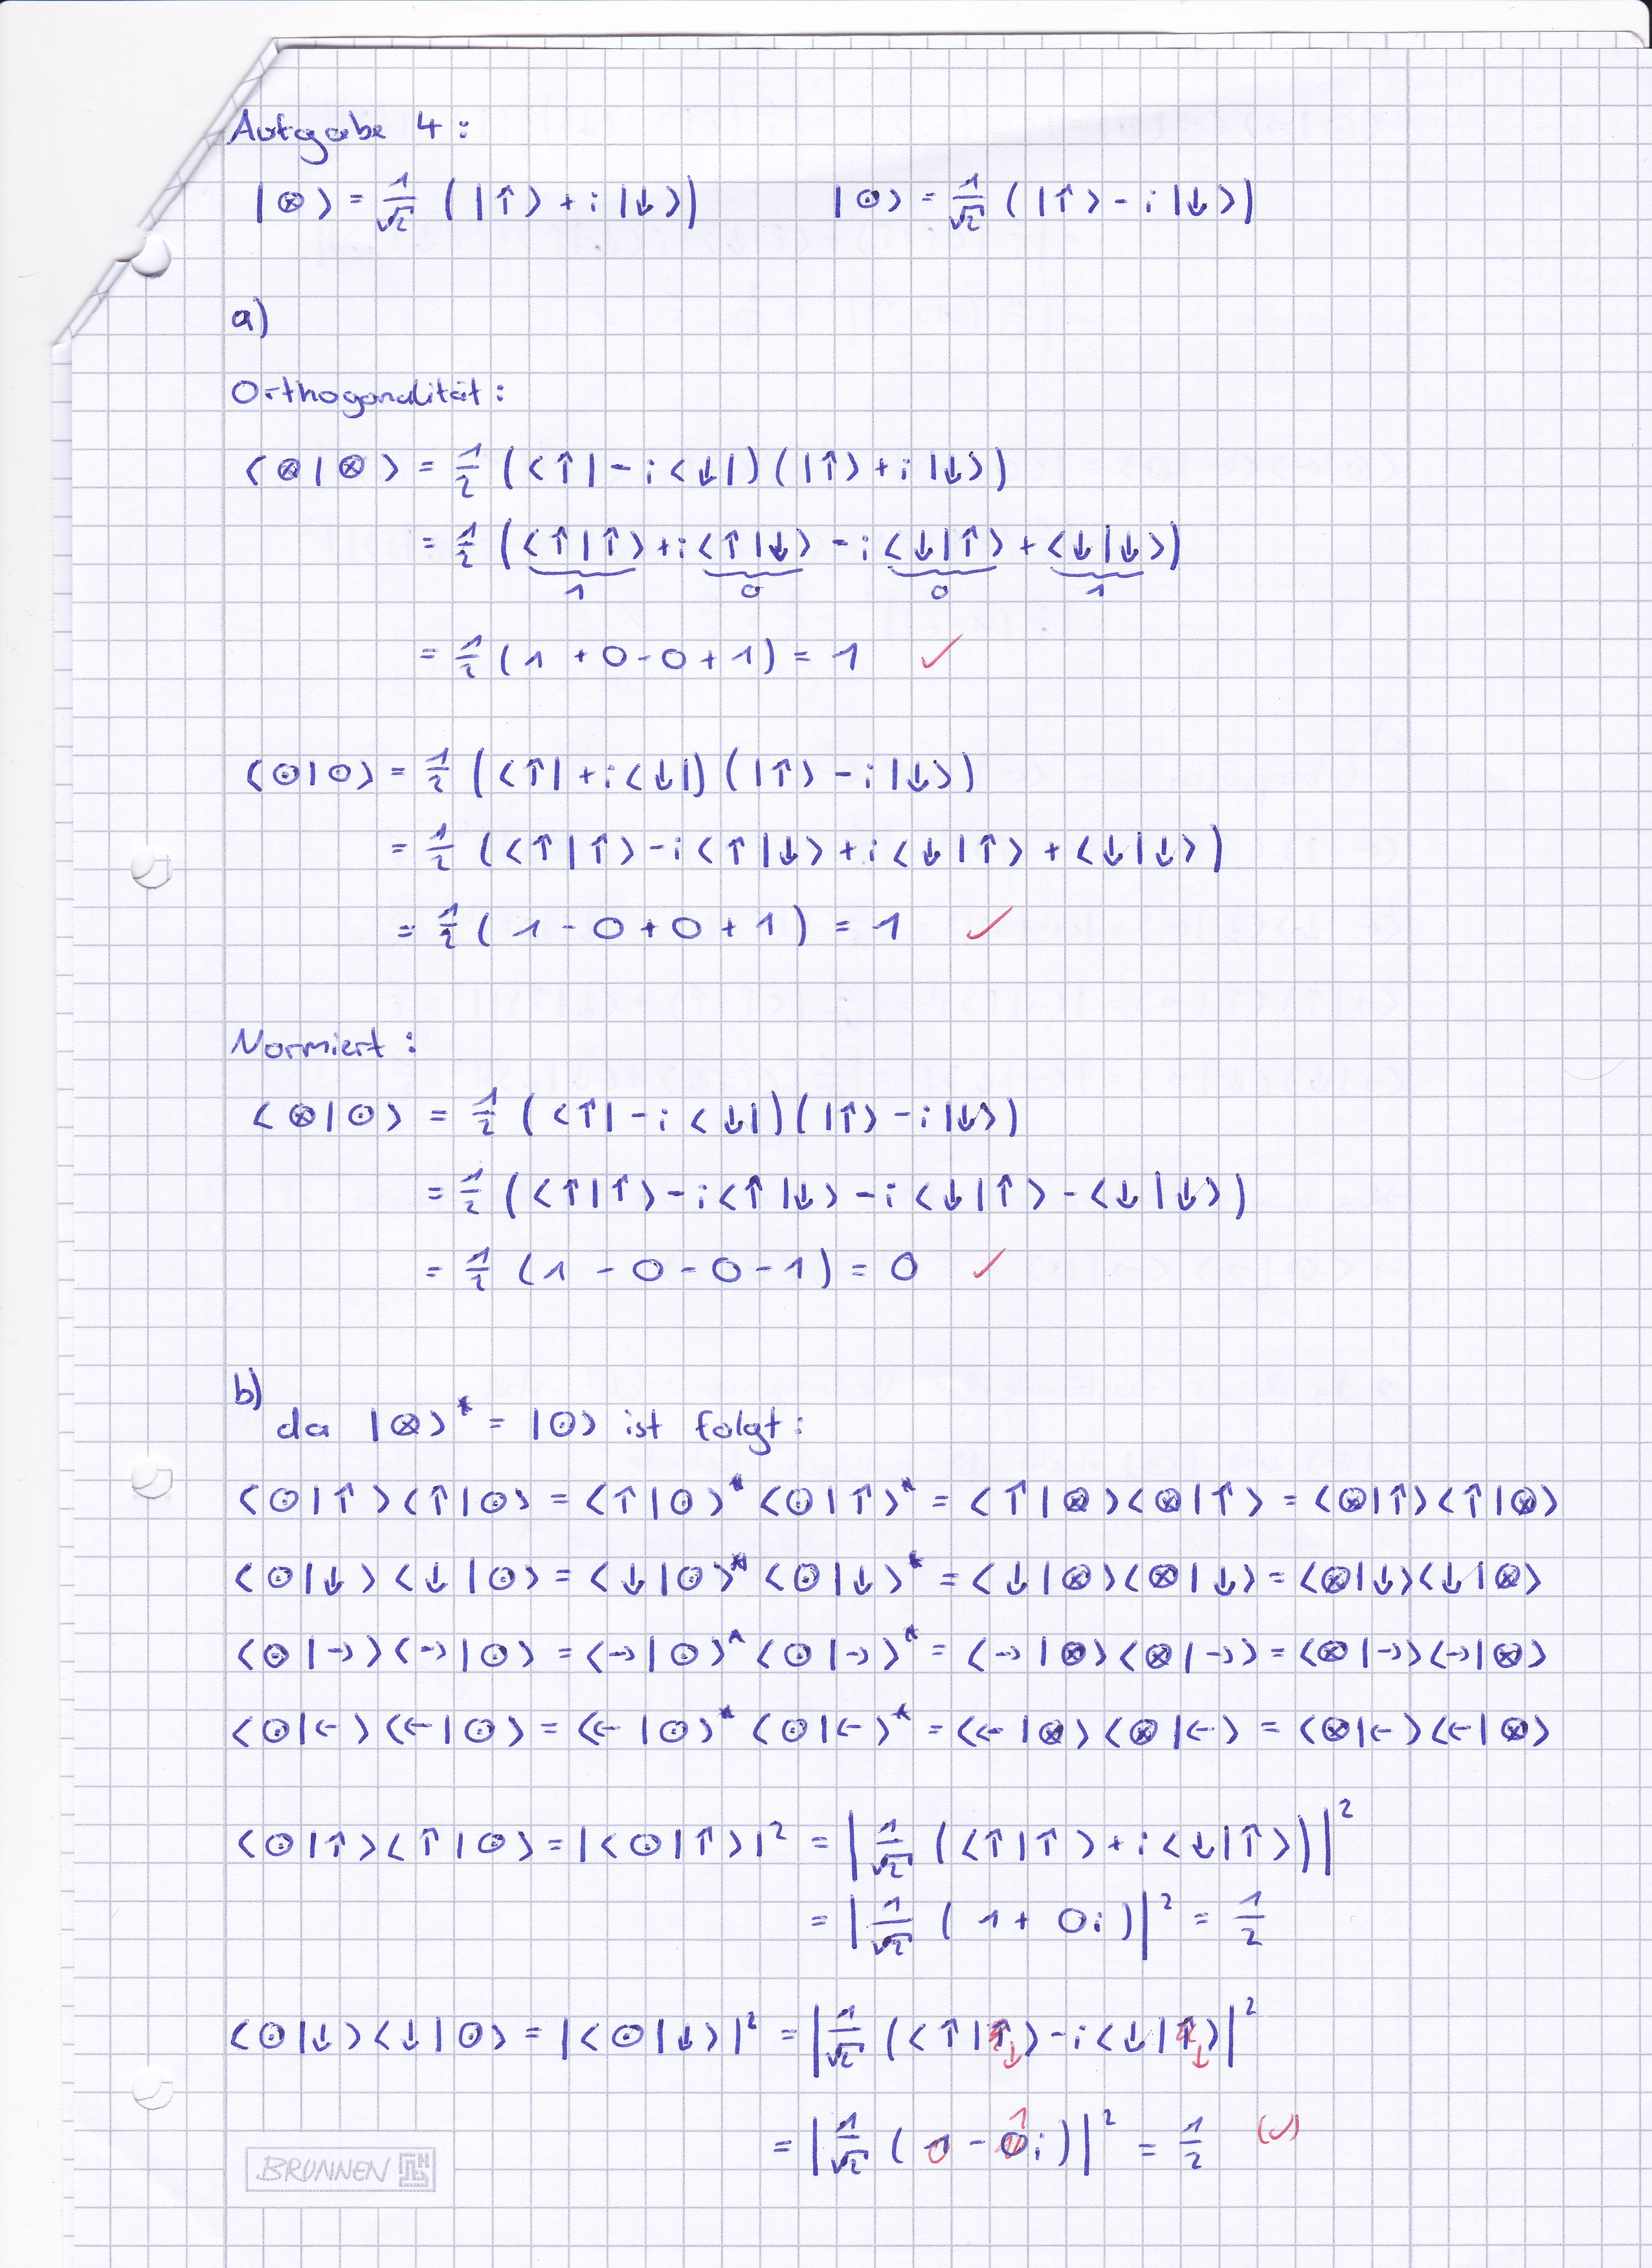 Aufgabe 4:
|⊗⟩ = 1/√2 (|↑⟩ + i|↓⟩) |⊙⟩ = 1/√2 (|↑⟩ - i|↓⟩)
a)
Orthogonalität:
⟨⊗|⊗⟩ = 1/2 (⟨↑| - i⟨↓|)(|↑⟩ + i|↓⟩)
= 1/2 (⟨↑|↑⟩ + i⟨↑|↓⟩ - i⟨↓|↑⟩ + ⟨↓|↓⟩)
1 0 0 1
= 1/2 (1 + 0 - 0 + 1) = 1 ✓
⟨⊙|⊙⟩ = 1/2 (⟨↑| + i⟨↓|)(|↑⟩ - i|↓⟩)
= 1/2 (⟨↑|↑⟩ - i⟨↑|↓⟩ + i⟨↓|↑⟩ + ⟨↓|↓⟩)
= 1/2 (1 - 0 + 0 + 1) = 1 ✓
Normiert:
⟨⊗|⊙⟩ = 1/2 (⟨↑| - i⟨↓|)(|↑⟩ - i|↓⟩)
= 1/2 (⟨↑|↑⟩ - i⟨↑|↓⟩ - i⟨↓|↑⟩ - ⟨↓|↓⟩)
= 1/2 (1 - 0 - 0 - 1) = 0 ✓
b)
da |⊗⟩* = |⊙⟩ ist folgt:
⟨⊙|↑⟩⟨↑|⊙⟩ = ⟨↑|⊙⟩* ⟨⊙|↑⟩* = ⟨↑|⊗⟩⟨⊗|↑⟩ = ⟨⊗|↑⟩⟨↑|⊗⟩
⟨⊙|↓⟩⟨↓|⊙⟩ = ⟨↓|⊙⟩* ⟨⊙|↓⟩* = ⟨↓|⊗⟩⟨⊗|↓⟩ = ⟨⊗|↓⟩⟨↓|⊗⟩
⟨⊙|→⟩⟨→|⊙⟩ = ⟨→|⊙⟩* ⟨⊙|→⟩* = ⟨→|⊗⟩⟨⊗|→⟩ = ⟨⊗|→⟩⟨→|⊗⟩
⟨⊙|←⟩⟨←|⊙⟩ = ⟨←|⊙⟩* ⟨⊙|←⟩* = ⟨←|⊗⟩⟨⊗|←⟩ = ⟨⊗|←⟩⟨←|⊗⟩
⟨⊙|↑⟩⟨↑|⊙⟩ = |⟨⊙|↑⟩|² = |1/√2 (⟨↑|↑⟩ + i⟨↓|↑⟩)|²
= |1/√2 (1 + 0i)|² = 1/2
⟨⊙|↓⟩⟨↓|⊙⟩ = |⟨⊙|↓⟩|² = |1/√2 (⟨↑|↓⟩ - i⟨↓|↓⟩)|²
= |1/√2 (0 - 1i)|² = 1/2 (✓)
BRUNNEN